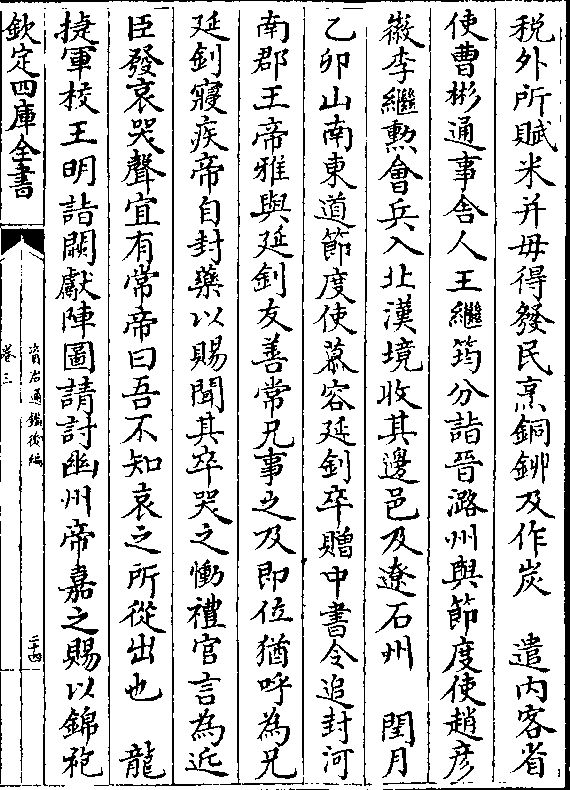 税外所賦米并毋得發民烹銅鉚及作炭　遣内客省
使曹彬通事舎人王繼筠分詣晉潞州與節度使趙彦
徽李繼勲會兵入北漢境收其邊邑及遼石州　閏月
乙卯山南東道節度使慕容延釗卒贈中書令追封河
南郡王帝雅與延釗友善常兄事之及即位猶呼為兄
延釗寢疾帝自封藥以賜聞其卒哭之慟禮官言為近
臣發哀哭聲宜有常帝曰吾不知哀之所從出也　龍
捷軍校王明詣闕獻陣圖請討幽州帝嘉之賜以錦袍
欽定四庫全書
資治通鑑後編
卷三
二十四